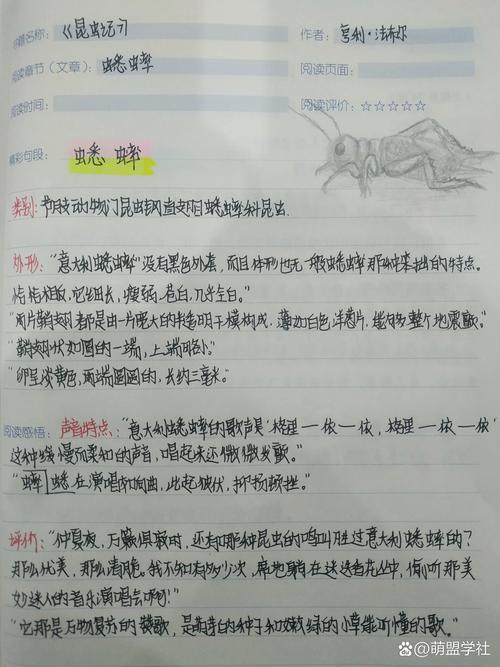 书籍名称： 《昆虫记》
作者： 亨利·法布尔
阅读章节（文章）： 蟋蟀
阅读页面：
阅读时间：
阅读评价：☆☆☆☆☆
精彩句段： 蟋蟀
类别：节肢动物门昆虫纲直翅目蟋蟀科昆虫.
外形：“意大利蟋蟀”没有黑色外套，而且体形也无一般蟋蟀那种粗壮的特点。
恰恰相反，它细长，瘦弱，苍白，几乎全白。”
“两片鞘翅都是由一片宽大的半透明干膜构成，薄如白色洋葱片，能够整个地震颤。”
“鞘翅状如圆的一端，上端略小。”
“卵呈淡黄色，两端圆圆的，长约三毫米。”
阅读感悟：声音特点：“意大利蟋蟀的歌声是‘格里—依—依，格里—依—依’
这种缓慢而柔和的声音，唱起来还微微发颤。”
“蟀蟋在演唱奏响曲，此起彼伏，抑扬顿挫。”
评价：“仲夏夜，万籁俱寂时，还有哪种昆虫的鸣叫胜过意大利蟋蟀的？
那么优美，那么清脆。我不知有多少次，席地躺在迷迭香花丛中，偷听那美
妙迷人的音乐演唱会啊！”
“它那是万物复苏的赞歌，是萌芽的种子和嫩绿的小草能听懂的歌。”
萌盟学社